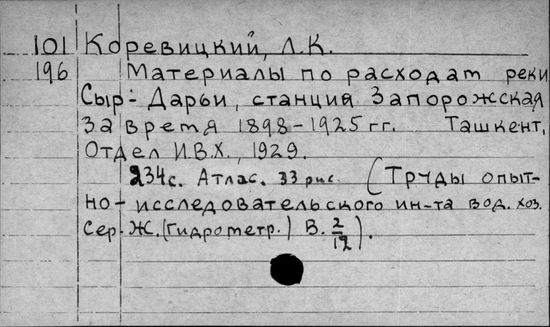 101 Коревицкий, Л.К.
196 Материалы по расходам реки
Сыр-Дарьи, станция Запорожская
за время 1898-1925 гг. Ташкент,
Отдел И.В.Х., 1929.
234с. Атлас. 33 рис. (Труды опыт-
но-исследовательского ин-та вод. хоз.
Сер. Ж. (Гидрометр.) В. 2/12).